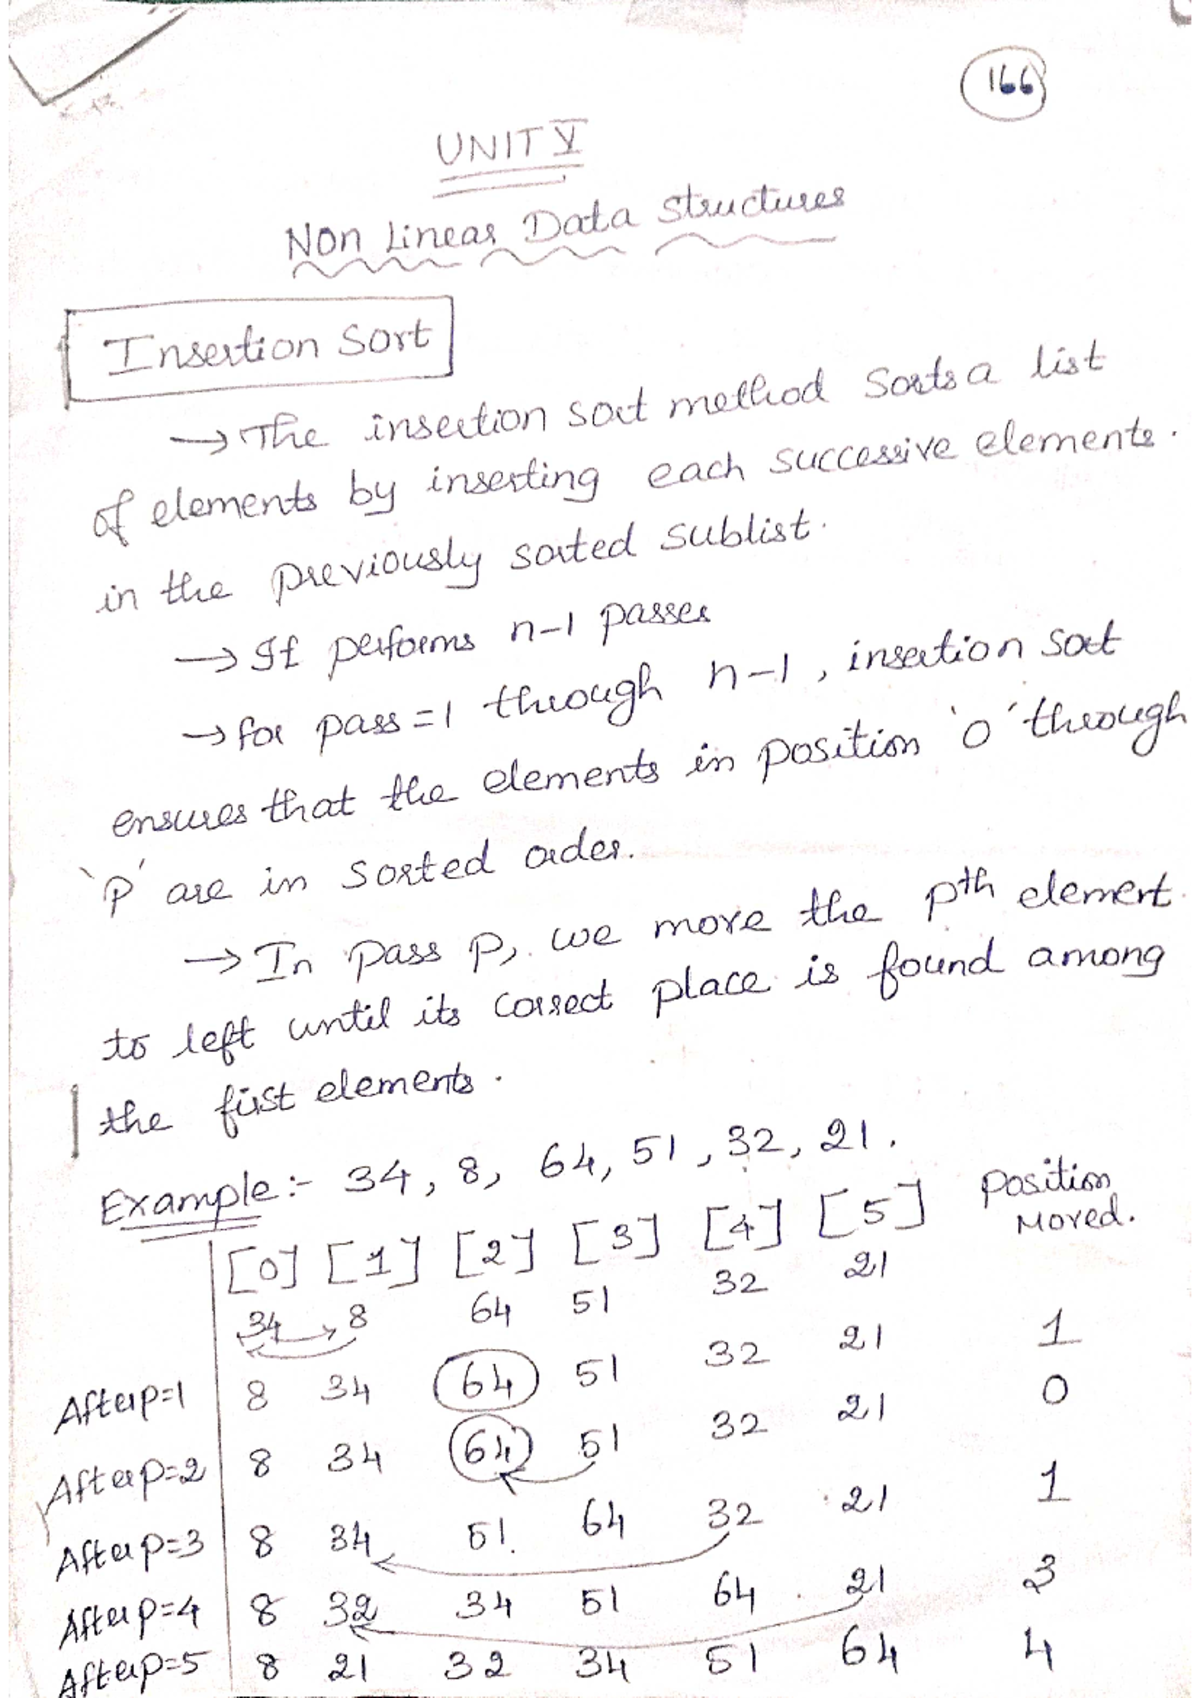 166
UNIT V
Non Linear Data Structures
Insertion Sort
→ The insertion sort method sorts a list
of elements by inserting each successive elements.
in the previously sorted sublist.
→ It performs n-1 passes
→ for pass = 1 through n-1, insertion sort
ensures that the elements in position '0' through
'p' are in sorted order.
→ In pass p, we move the pth element
to left until its correct place is found among
the first elements.
Example:- 34, 8, 64, 51, 32, 21.
[0] [1] [2] [3] [4] [5] Position Moved.
34 8 64 51 32 21
After p=1 8 34 64 51 32 21 1
After p=2 8 34 64 51 32 21 0
After p=3 8 34 51 64 32 21 1
After p=4 8 32 34 51 64 21 3
After p=5 8 21 32 34 51 64 4